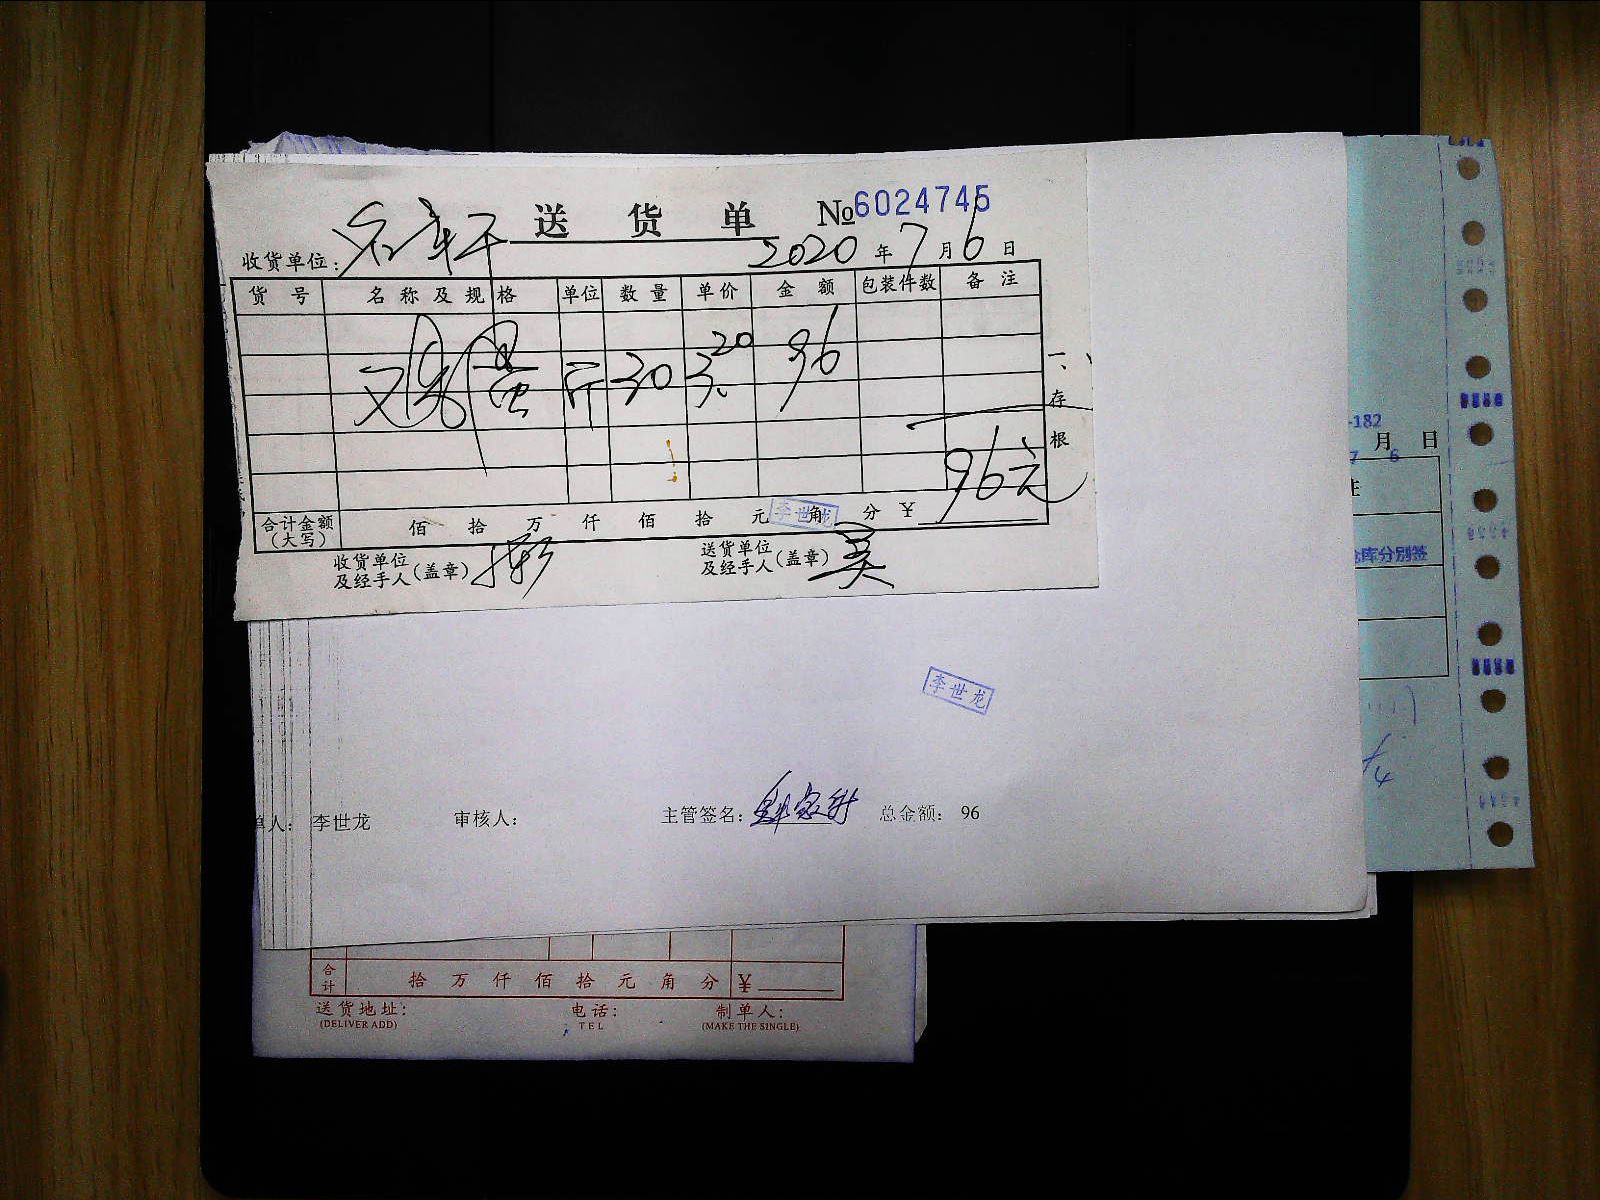 送货单 №6024745
收货单位：
2020年7月6日
货号 名称及规格 单位 数量 单价 金额 包装件数 备注
鸡蛋 斤 30 3.20 96
一、存根
96元
合计金额（大写） 佰 拾 万 仟 佰 拾 元 角 分 ¥
李世龙
收货单位及经手人（盖章）
送货单位及经手人（盖章） 吴
-182
月 日
7 6
库分别签
李世龙
单人： 李世龙 审核人： 主管签名： 总金额： 96
合计 拾 万 仟 佰 拾 元 角 分 ¥
送货地址： 电话： 制单人：
(DELIVER ADD) TEL (MAKE THE SINGLE)